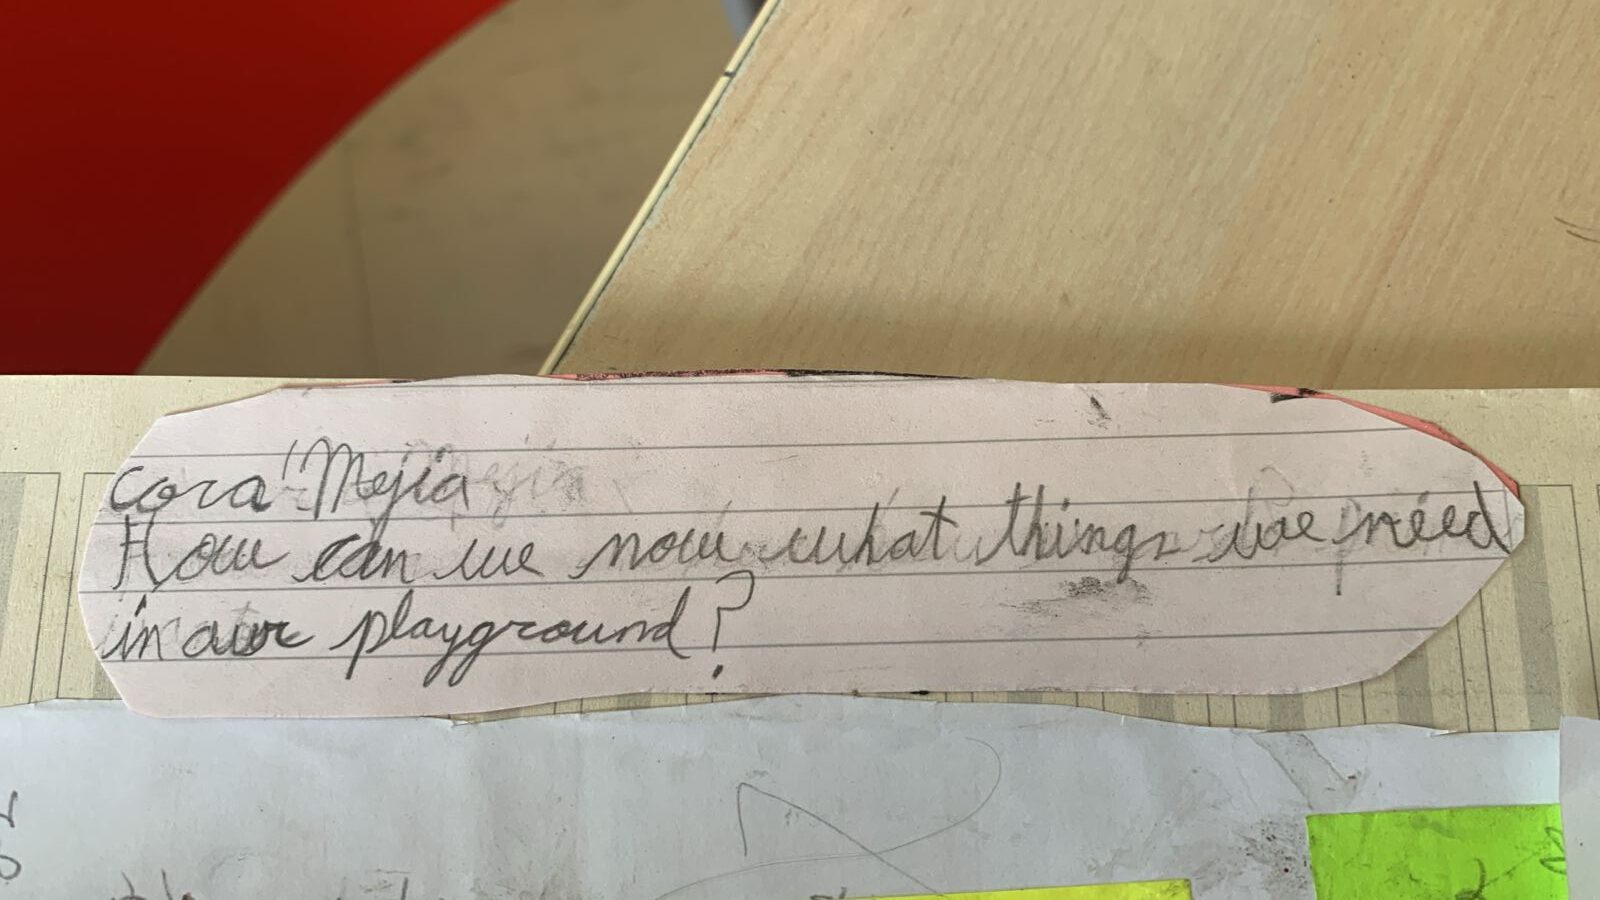 cora Mejia
How can we now what things we need
in our playground?